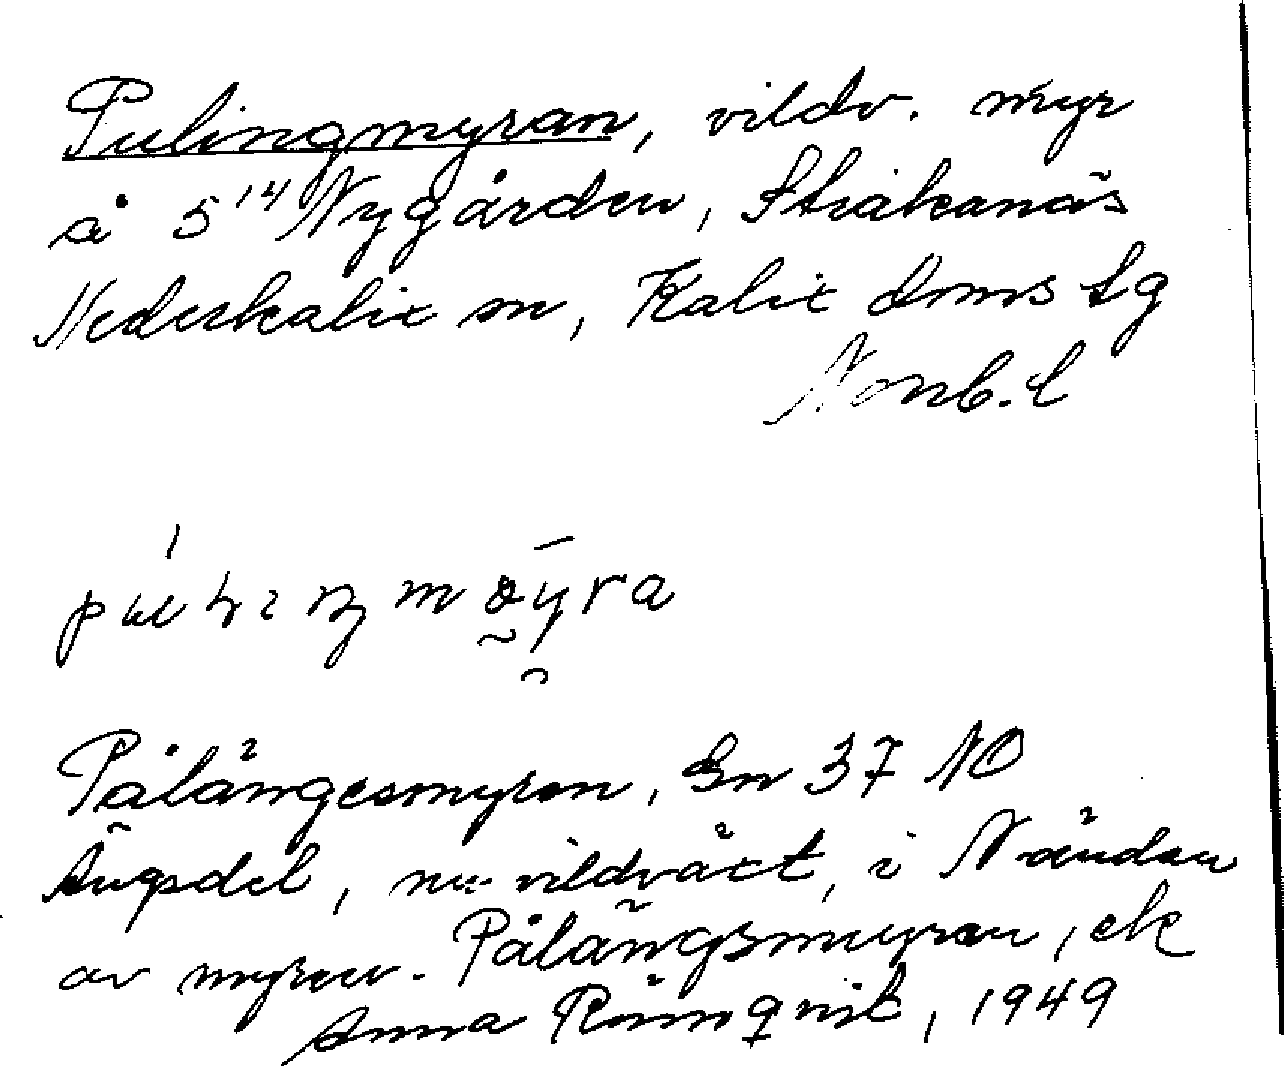 Pulingmyran, vildv. myr
å 5¹⁴ Nygården, Stråkanäs
Nederkalix sn, Kalix doms lg
Norrb. l
Pålängesmyren, En 37 NO
Ängsdel, nu vildväxt, i Nändan
av myren. Pålängsmyran, ek
Anna Rönnqvist, 1949